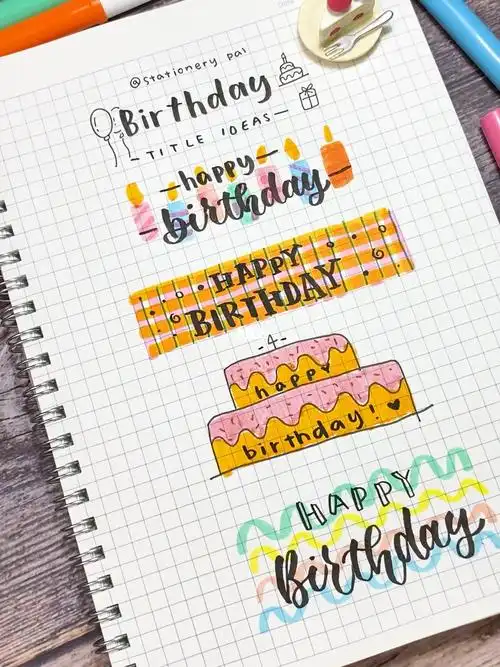 @stationery pal
Birthday
- TITLE IDEAS -
happy
birthday
HAPPY
BIRTHDAY
-4-
happy
birthday! ♥
HAPPY
Birthday